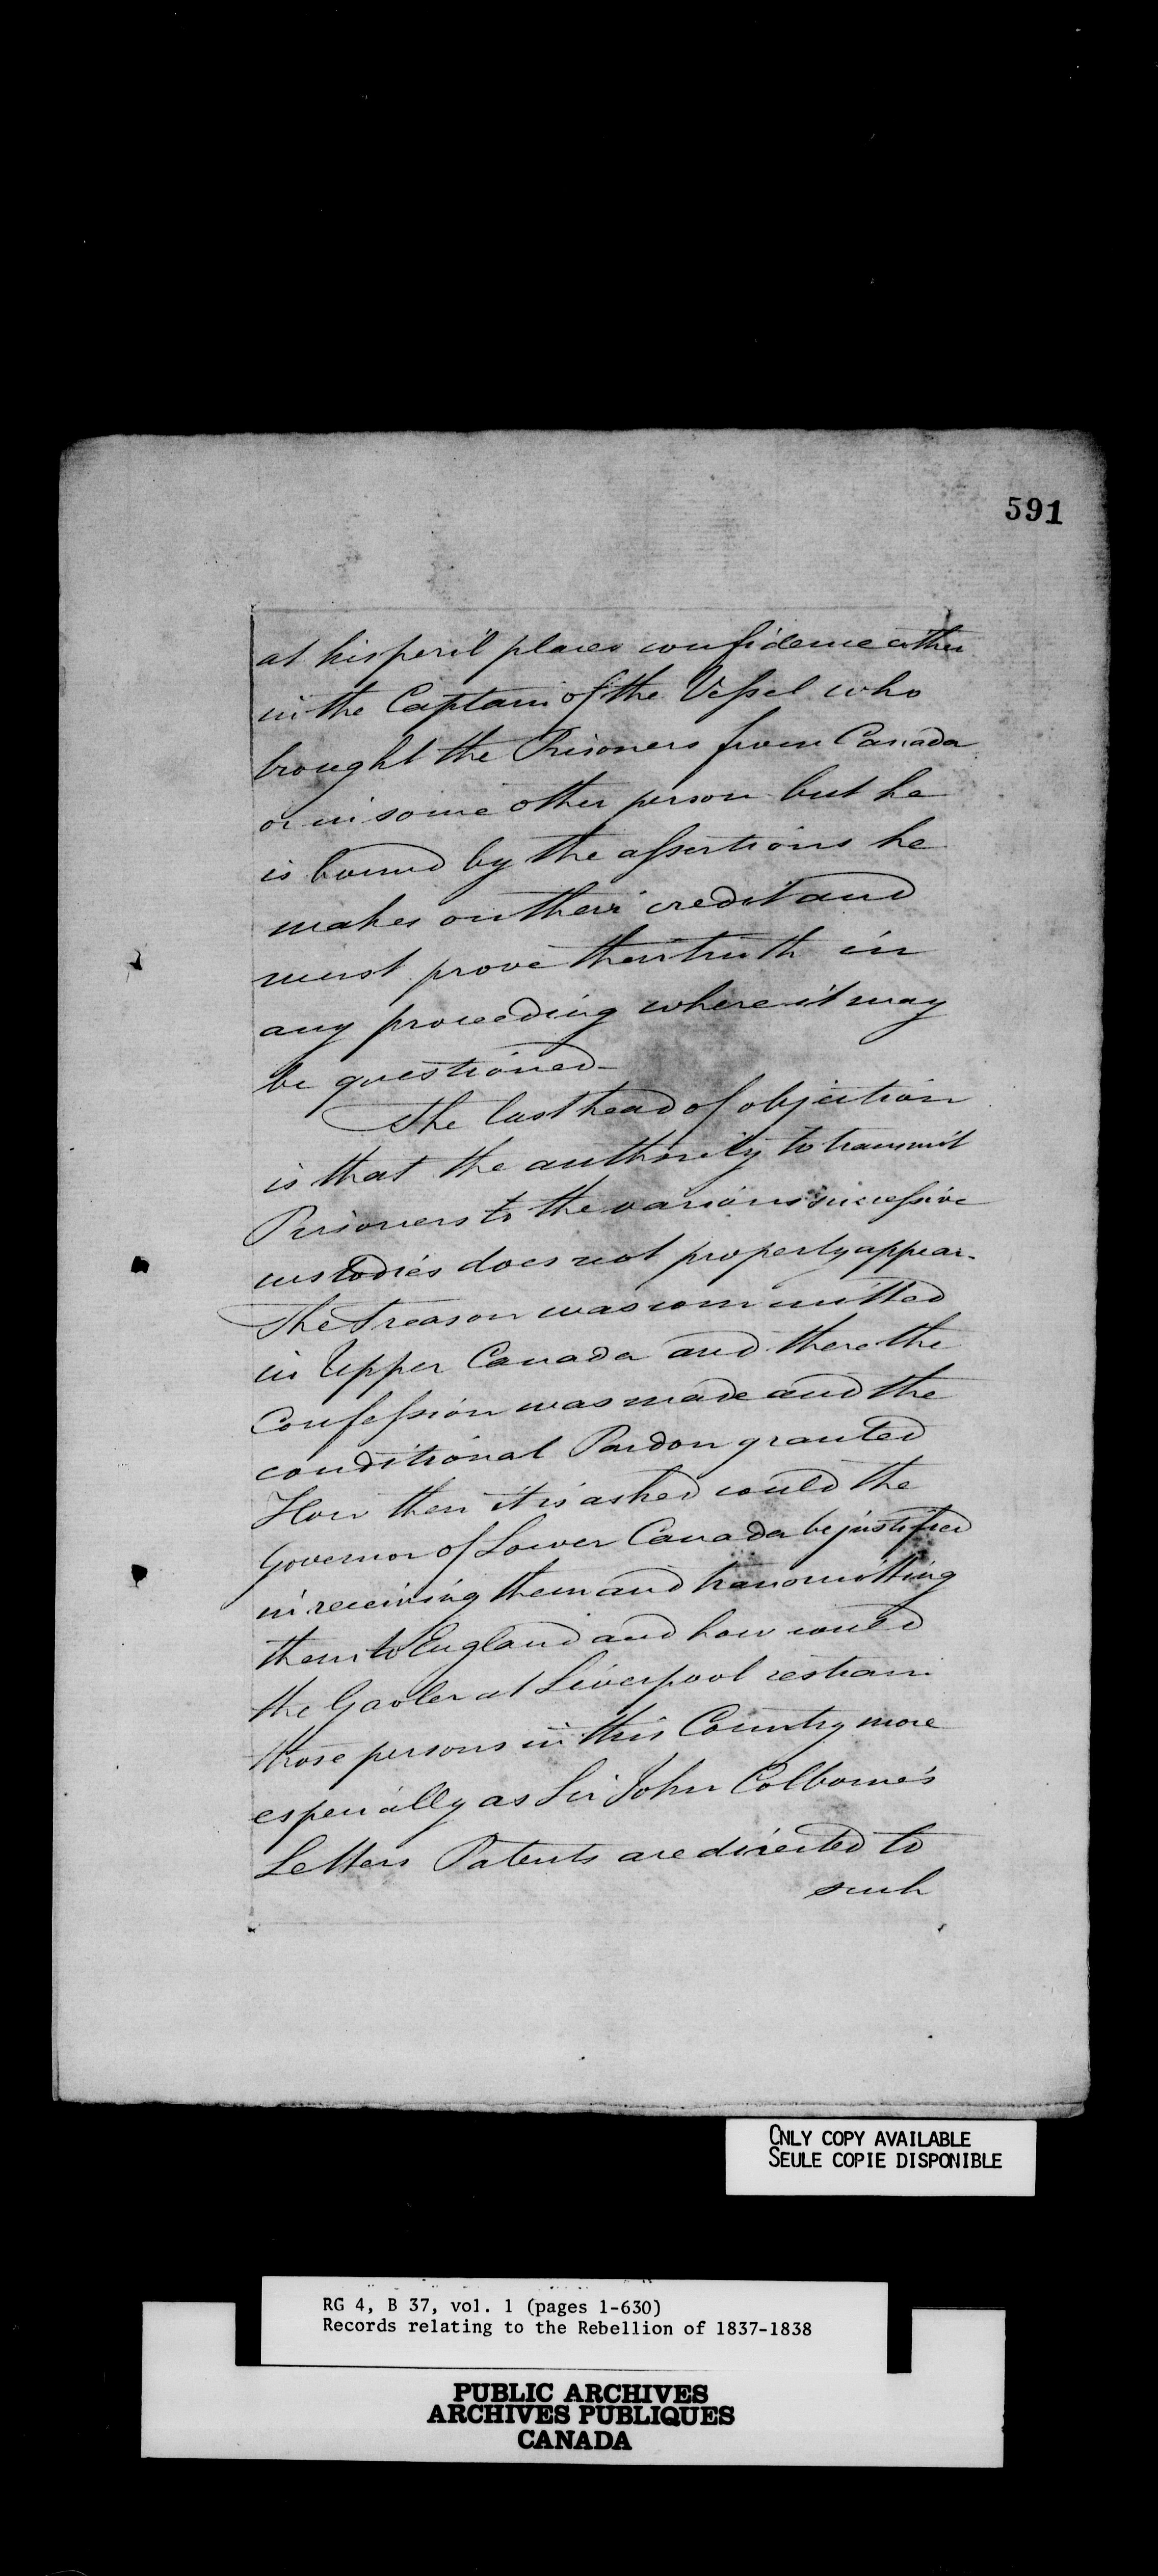 591
at his peril places confidence either
in the Captain of the Vessel who
brought the Prisoners from Canada
or in some other person but he
is bound by the assertions he
makes on their credit and
must prove their truth in
any proceeding where it may
be questioned
The last head of objection
is that the authority to transmit
Prisoners to the various successive
custodies does not properly appear.
The Treason was committed
in Upper Canada and there the
Confession was made and the
conditional Pardon granted
How then it is asked could the
Governor of Lower Canada be justified
in receiving them and transmitting
them to England and how could
the Gaoler at Liverpool restrain
those persons in this Country more
especially as Sir John Colborne's
Letters Patents are directed to
such
ONLY COPY AVAILABLE
SEULE COPIE DISPONIBLE
RG 4, B 37, vol. 1 (pages 1-630)
Records relating to the Rebellion of 1837-1838
PUBLIC ARCHIVES
ARCHIVES PUBLIQUES
CANADA